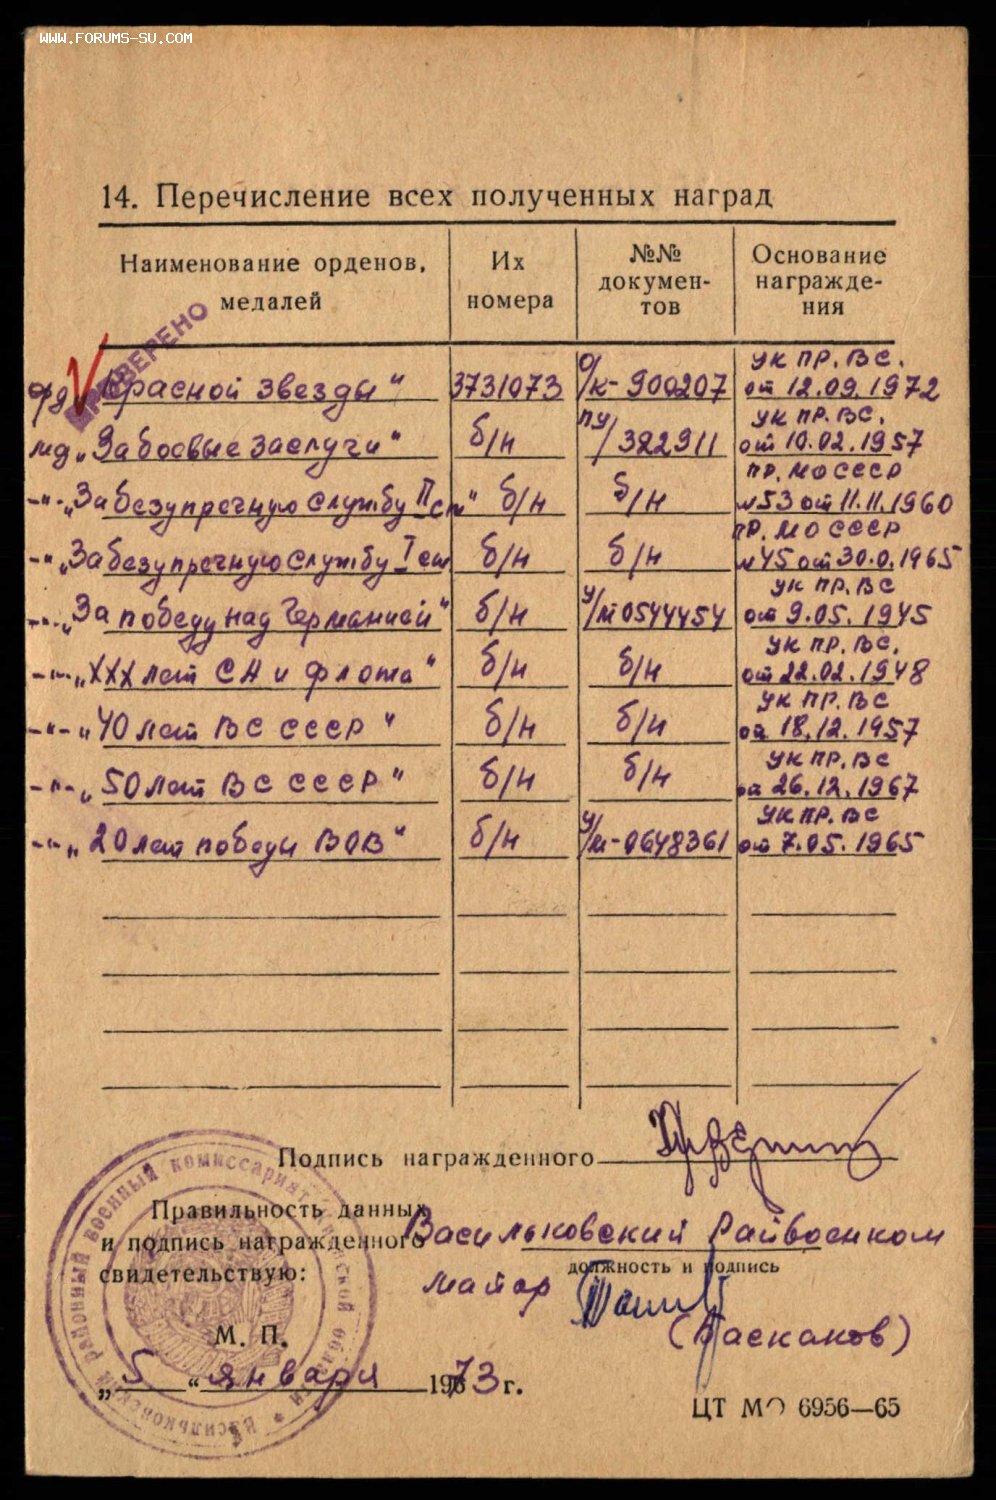 WWW.FORUMS-SU.COM
14. Перечисление всех полученных наград
Наименование орденов, медалей
Их номера
№№ докумен-тов
Основание награжде-ния
ПРОВЕРЕНО
орд „Красной Звезды“ 3731073 О/к-900207 УК ПР. ВС. от 12.09.1972
мд „За боевые заслуги“ б/н ПУ/322911 УК ПР. ВС. от 10.02.1957
-"- „За безупречную службу II ст“ б/н б/н ПР. МО СССР №53 от 11.11.1960
-"- „За безупречную службу I ст б/н б/н ПР. МО СССР №45 от 30.0.1965
-"- „За победу над Германией“ б/н У/м 0544454 УК ПР. ВС от 9.05.1945
-"- „XXX лет СА и флота“ б/н б/н УК ПР. ВС. от 22.02.1948
-"- „40 лет ВС СССР“ б/н б/н УК ПР. ВС от 18.12.1957
-"- „50 лет ВС СССР“ б/н б/н УК ПР. ВС от 26.12.1967
-"- „20 лет победы ВОВ“ б/н У/м-0648361 УК ПР. ВС от 7.05.1965
Подпись награжденного
Правильность данных
и подпись награжденного
свидетельствую:
Васильковский Райвоенком
должность и подпись
майор
(Баскаков)
М. П.
„5“ января 1973 г.
ЦТ МО 6956—65
Васильковский районный военный комиссариат ской области